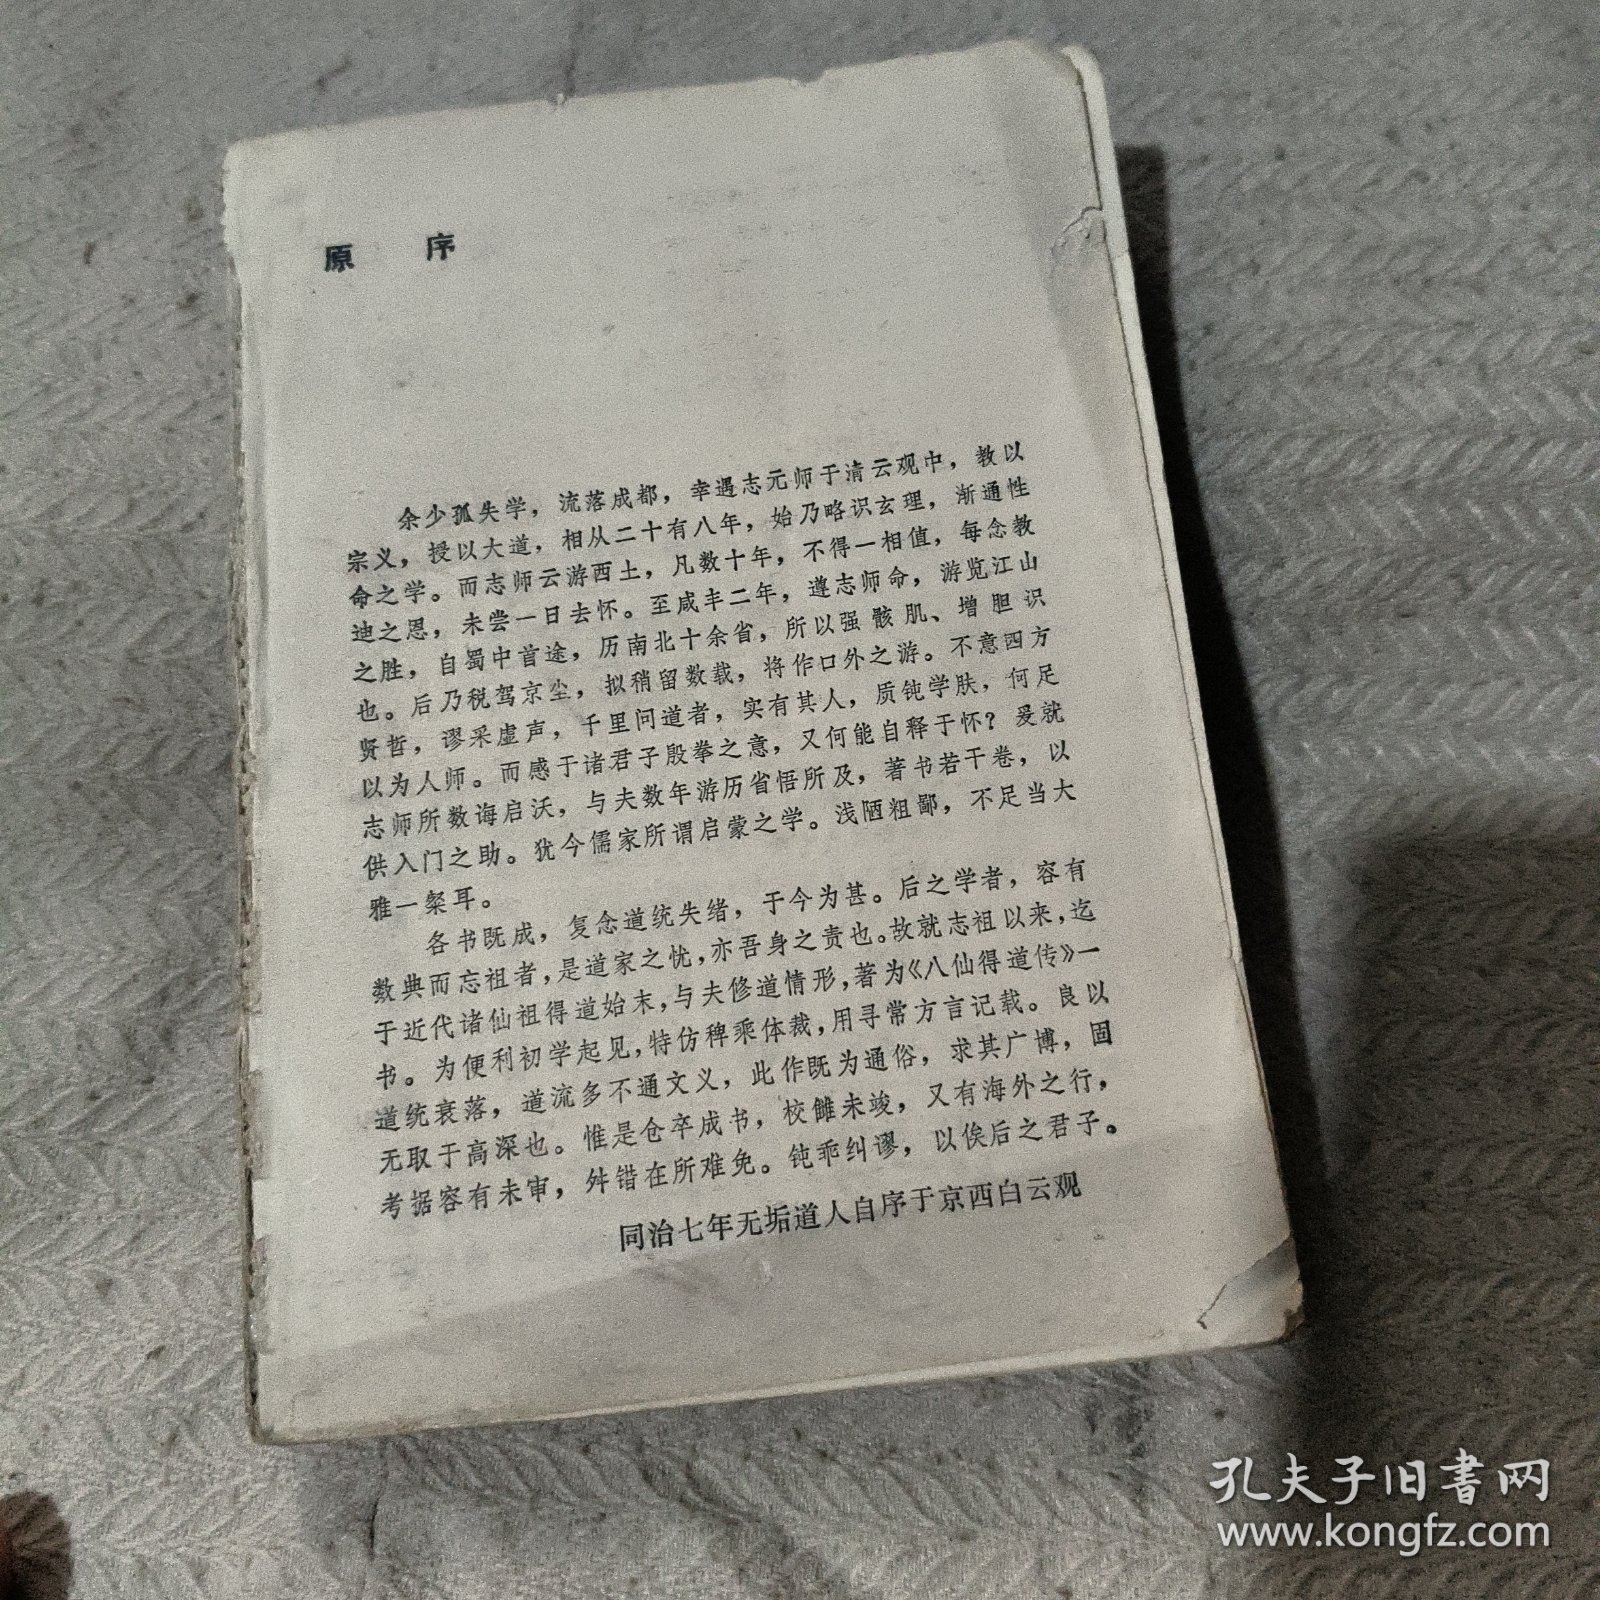 原 序
余少孤失学，流落成都，幸遇志元师于清云观中，教以
宗义，授以大道，相从二十有八年，始乃略识玄理，渐通性
命之学。而志师云游西土，凡数十年，不得一相值，每念教
迪之恩，未尝一日去怀。至咸丰二年，遵志师命，游览江山
之胜，自蜀中首途，历南北十余省，所以强骸肌、增胆识
也。后乃税驾京尘，拟稍留数载，将作口外之游。不意四方
贤哲，谬采虚声，千里问道者，实有其人，质钝学肤，何足
以为人师。而感于诸君子殷拳之意，又何能自释于怀？爰就
志师所数诲启沃，与夫数年游历省悟所及，著书若干卷，以
供入门之助。犹今儒家所谓启蒙之学。浅陋粗鄙，不足当大
雅一粲耳。
各书既成，复念道统失绪，于今为甚。后之学者，容有
数典而忘祖者，是道家之忧，亦吾身之责也。故就志祖以来，迄
于近代诸仙祖得道始末，与夫修道情形，著为《八仙得道传》一
书。为便利初学起见，特仿稗乘体裁，用寻常方言记载。良以
道统衰落，道流多不通文义，此作既为通俗，求其广博，固
无取于高深也。惟是仓卒成书，校雠未竣，又有海外之行，
考据容有未审，舛错在所难免。钝乖纠谬，以俟后之君子。
同治七年无垢道人自序于京西白云观
孔夫子旧书网
www.kongfz.com